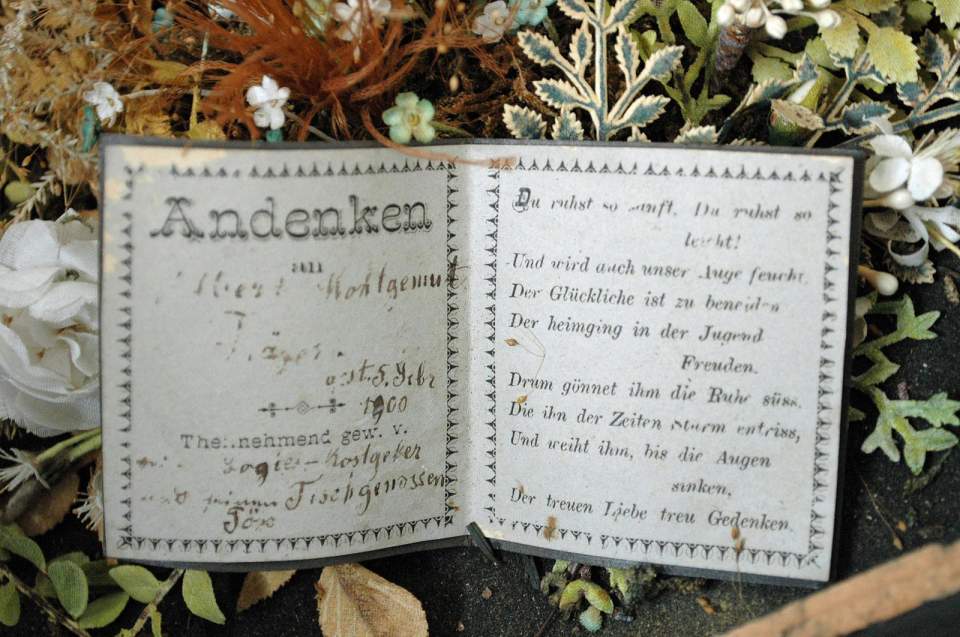 Andenken
an
Kohlgemut
gest. 5. Febr
1900
Theilnehmend gew. v.
Logies-Kostgeber
und seinen Tischgenossen
Du ruhst so sanft, Du ruhst so
leicht!
Und wird auch unser Auge feucht,
Der Glückliche ist zu beneiden
Der heimging in der Jugend
Freuden.
Drum gönnet ihm die Ruhe süss,
Die ihn der Zeiten Sturm entriss,
Und weiht ihm, bis die Augen
sinken,
Der treuen Liebe treu Gedenken.